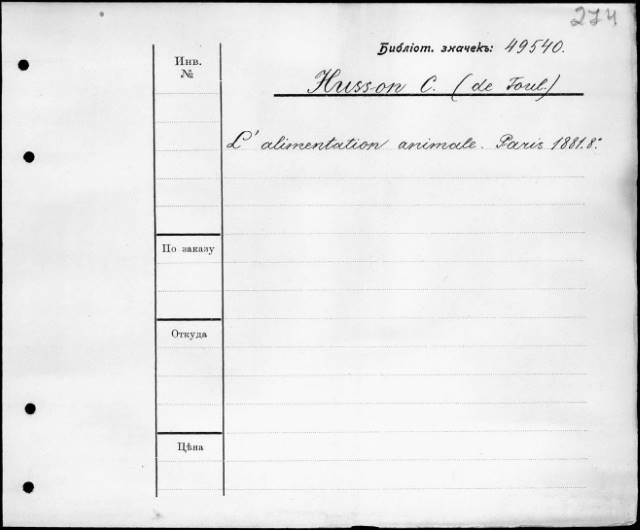 274
Библіот. значекъ: 49540.
Инв.
№
Husson C. (de Toul.)
L' alimentation animale. Paris 1881. 8°.
По заказу
Откуда
Цѣна